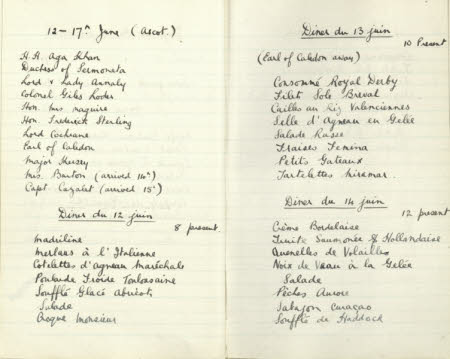 12 – 17th June (Ascot.)
H. H. Aga Khan
Duchess of Sermoneta
Lord & Lady Annaly
Colonel Giles Loder
Hon. Mrs Maguire
Hon. Frederick Sterling
Lord Cochrane
Earl of Caledon
Major Hussey
Mrs. Burton (arrived 14th)
Capt. Cazalet (arrived 15th)
Diner du 12 juin
8 present.
Madrilène
Merlans à l'Italienne
Cotelettes d'agneau Maréchale
Poularde Froide Toulousaine
Soufflé Glacé Abricots
Salade
Croque Monsieur
Diner du 13 juin
10 Present
(Earl of Caledon away)
Consommé Royal Derby
Filet Sole Breval
Cailles au Riz Valenciennes
Selle d'Agneau en Gelée
Salade Russe
Fraises Femina
Petits Gateaux
Tartelettes Miramar.
Diner du 14 juin
12 present
Crème Bordelaise
Truite Saumonée & Hollandaise
Quenelles de Volailles
Noix de Veau à la Gelée
Salade
Pêches Aurore
Curaçao
Soufflé de Haddock